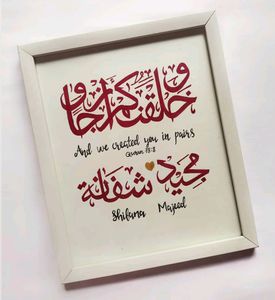 وخلقناكم أزواجا
And we created you in pairs
Quran 78:8
مجيد شفانة
Shifana Majeed